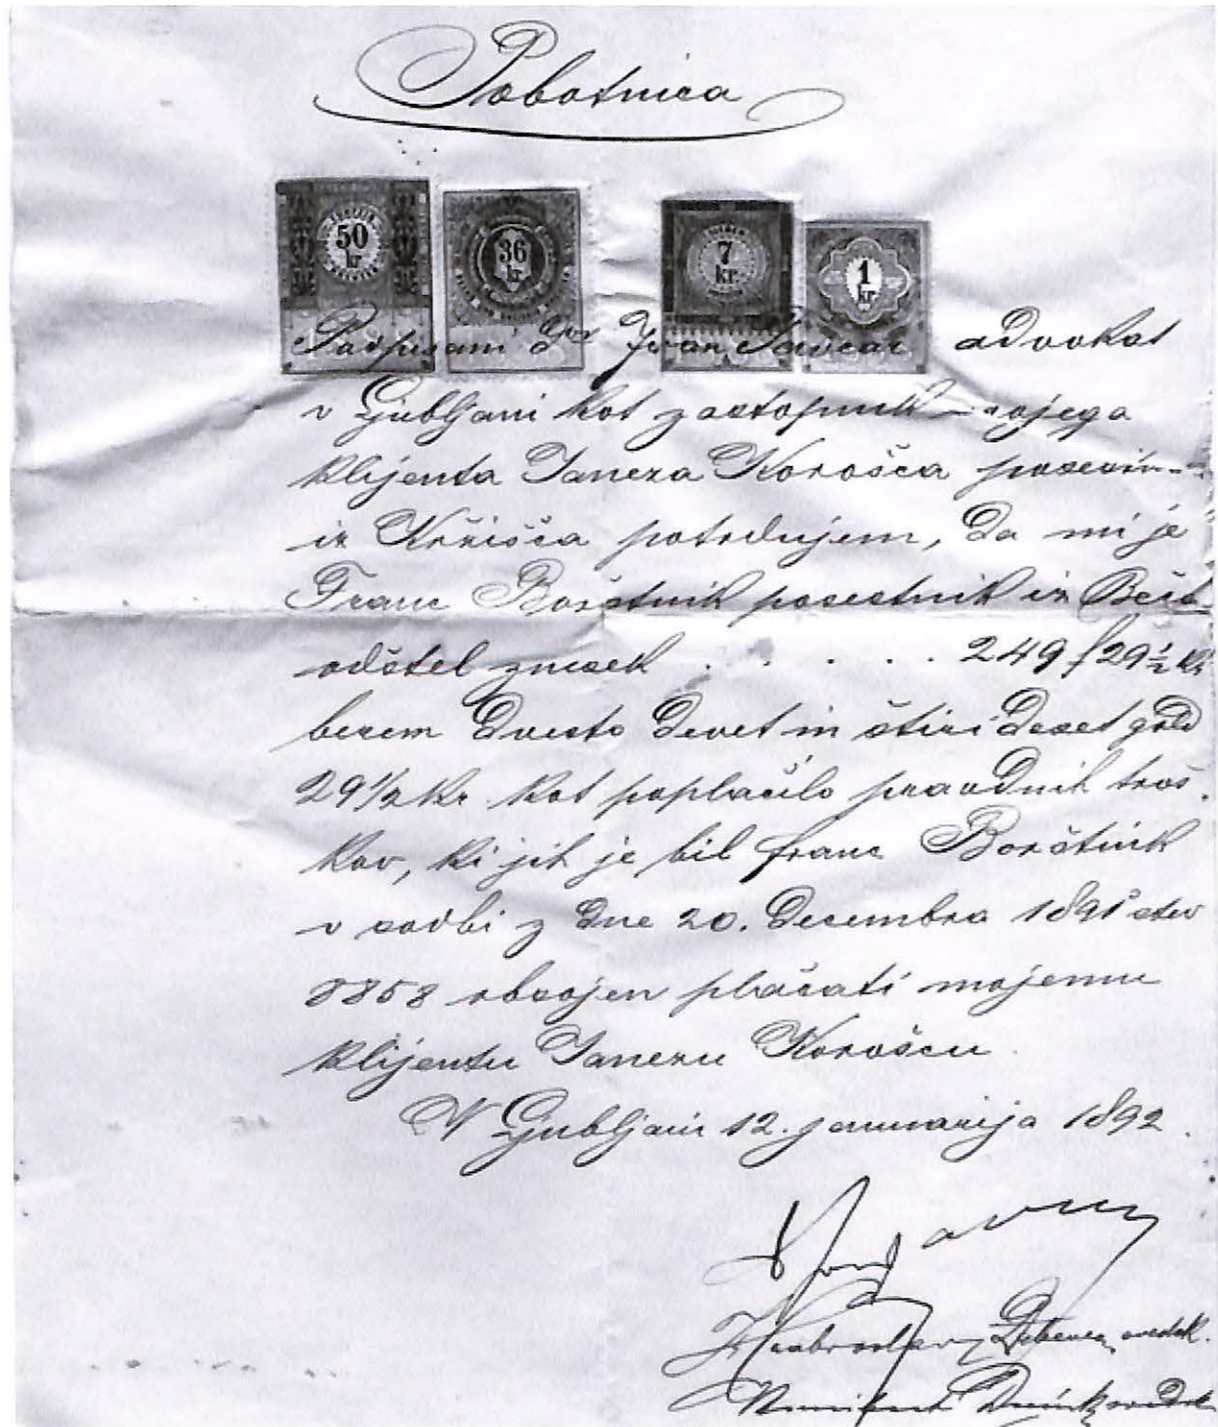 Pobotnica
50 kr
36 kr
7 kr
1 kr
Podpisani Dor Ivan Tavčar advokat
v Ljubljani kot zastopnik mojega
klijenta Janeza Korošca
iz Križišča potrdujem, da mi je
Franc Borštnik posestnik iz
odštel znesek . . . . . 249 f 29½ kr
berem dvesto devet in štirideset gold
29 1/2 kr. kot poplačilo pravdnih troš
kov, ki jih je bil Franc Borštnik
v sodbi z dne 20. decembra 1891 štev
8858 obsojen plačati mojemu
klijentu Janezu Korošcu
V Ljubljani 12. januarija 1892.